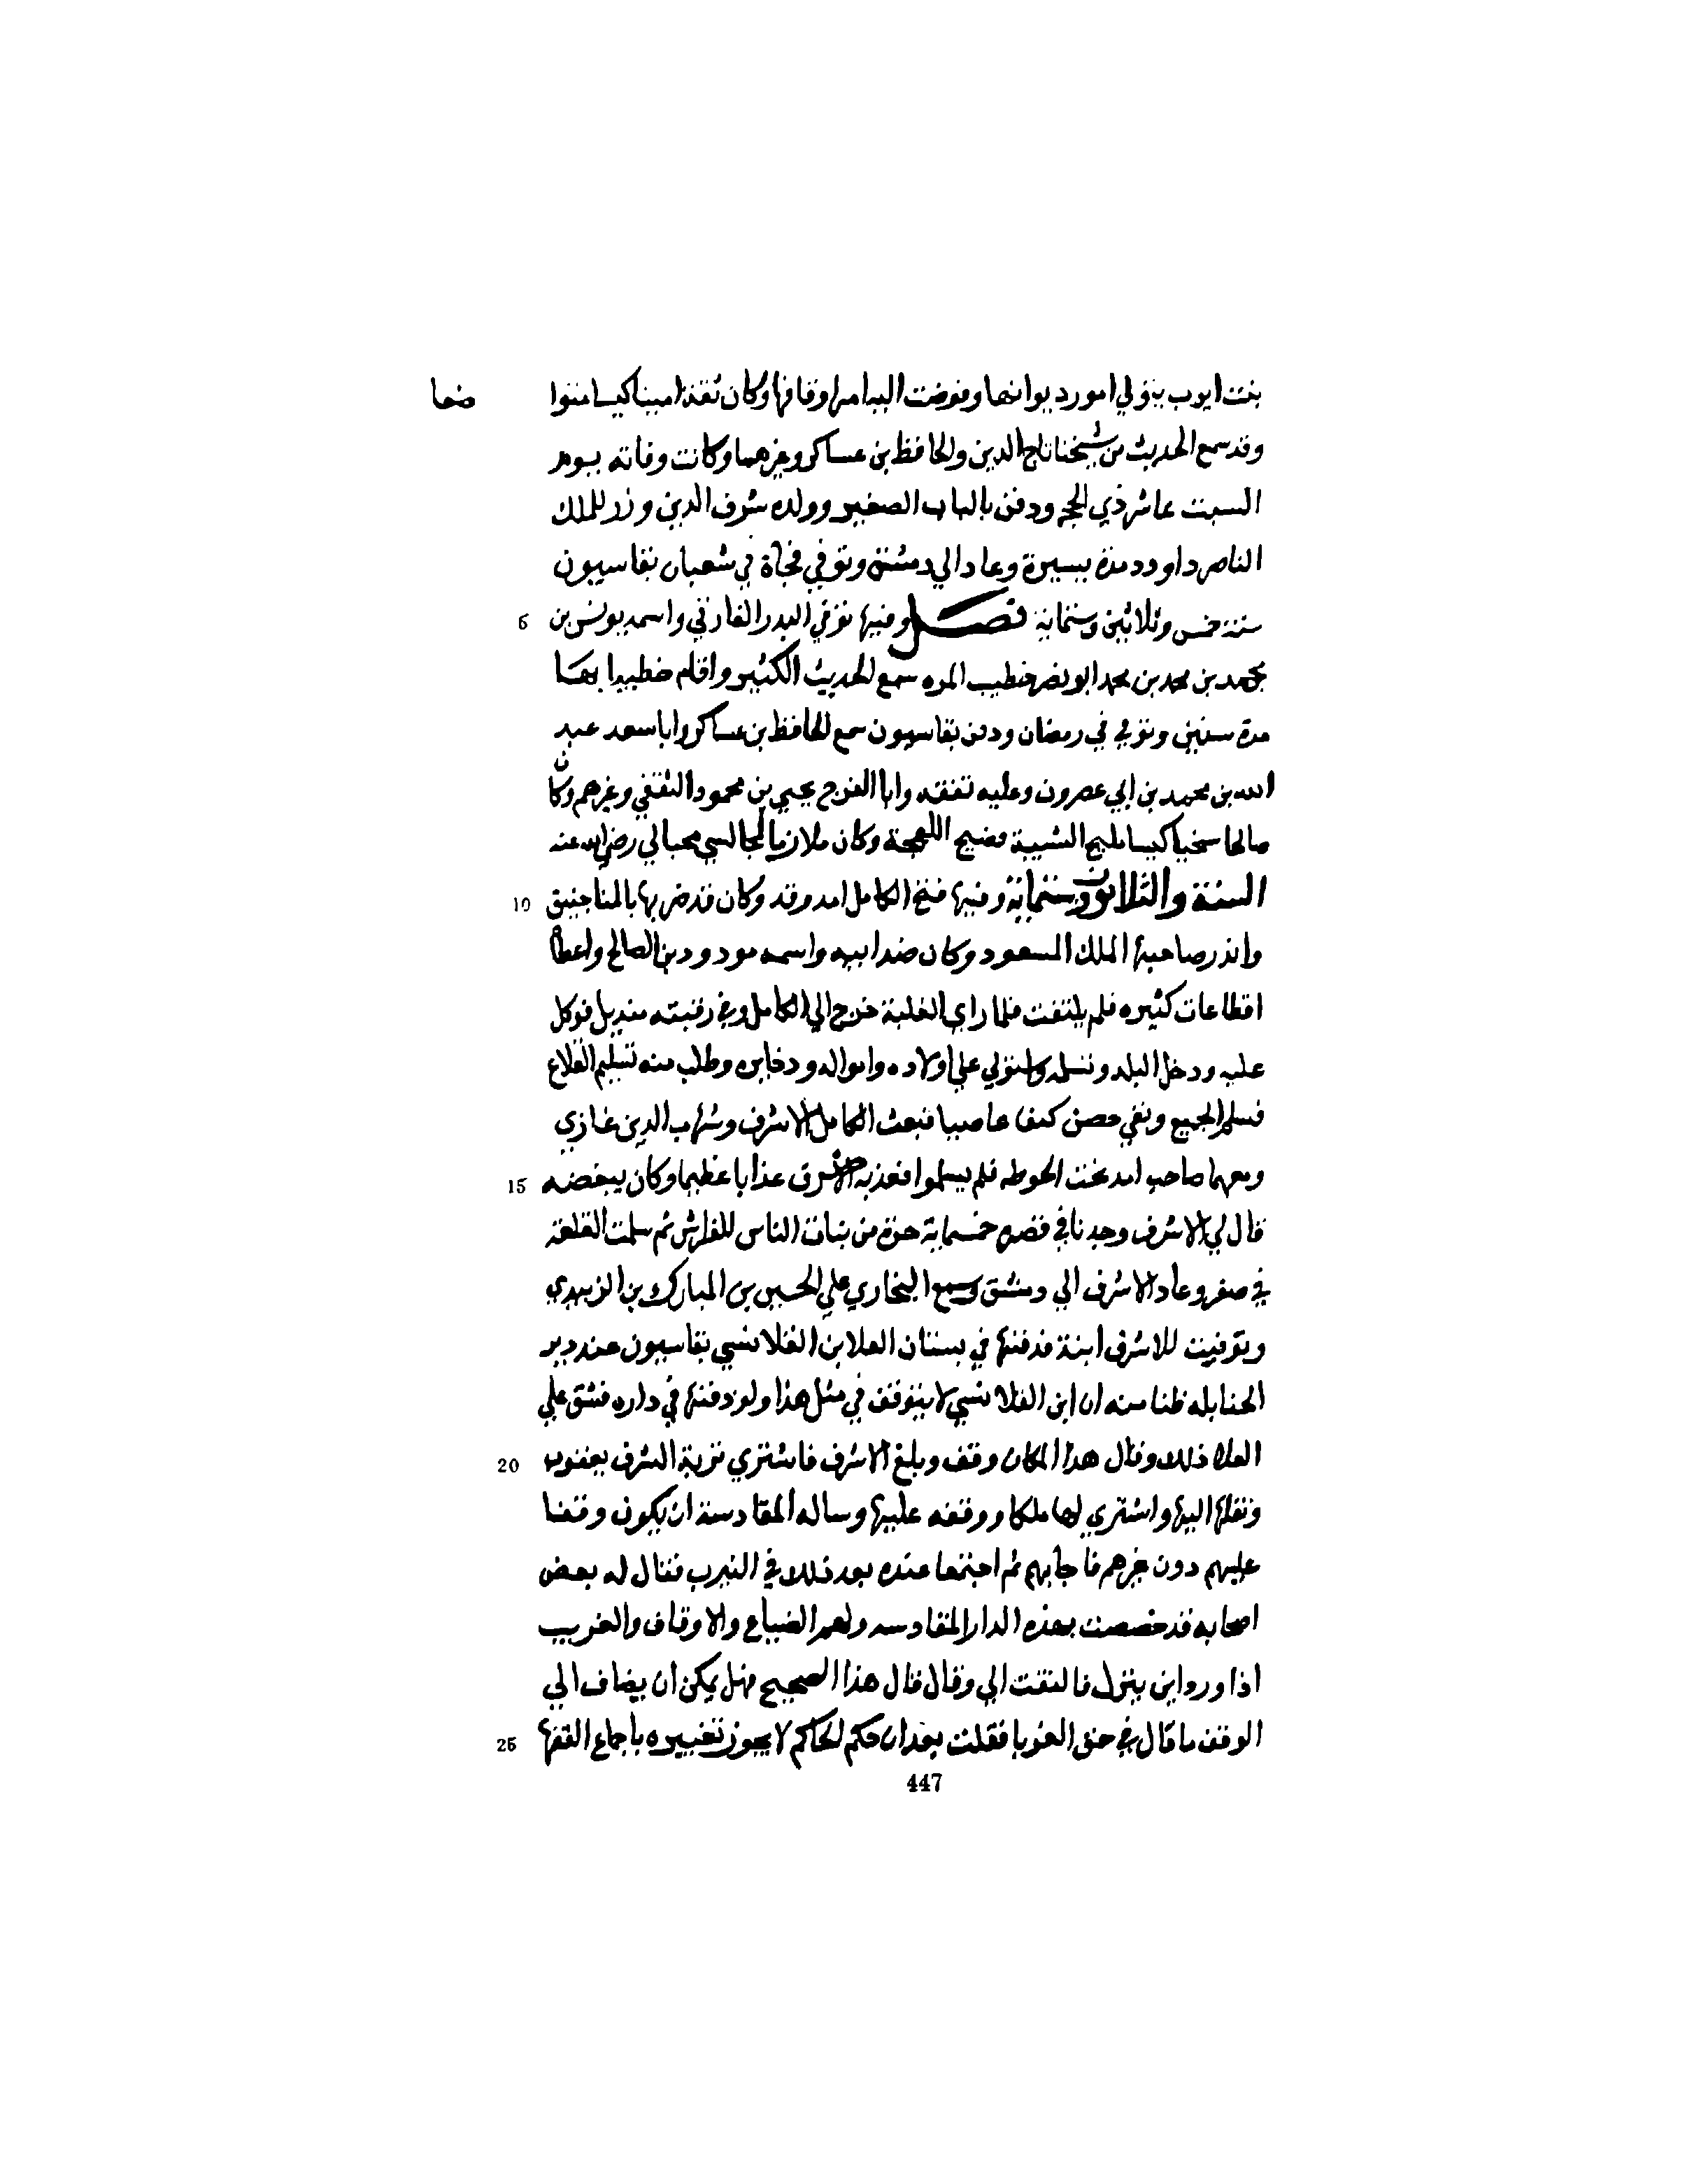 بنت ايوب يتولي امور ديوانها وفوضت اليه امر اوقافها وكان ثقة امينا كيسا متوا ضعا
وقد سمع الحديث من شيخنا تاج الدين والحافظ بن عساكر وغيرهما وكانت وفاته يوم
السبت عاشر ذي الحجه ودفن بالباب الصغير وولده شرف الدين وزر للملك
الناصر داود مدة يسيرة وعاد الي دمشق وتوفي فجاة في شعبان بقاسيون
سنة خمس وثلاثين وستماية فصل وفيها توفي البدر الفارقي واسمه يونس بن 5
محمد بن محمد بن محمد ابو نصر خطيب المزه سمع الحديث الكثير واقام خطيبا بها
مدة سنين وتوفي في رمضان ودفن بقاسيون سمع الحافظ بن عساكر وابا سعد عبد
الله بن محمد بن ابي عصرون وعليه تفقه وابا الفرج يحيي بن محمود الثقفي وغيرهم وكان
صالحا سخيا كيسا مليح الشيبة فصيح اللهجة وكان ملازما لمجالسي محبا لي رضي الله عنه
السنة والثلاثون وستماية وفيها فتح الكامل امد وقد وكان قد ضربها بالمناجنيق 10
وانذر صاحبها الملك المسعود وكان ضد ابيه واسمه مودود بن الصالح واعطاه
اقطاعات كثيره فلم يلتفت فلما راي الغلبة خرج الي الكامل وفي رقبته منديل فوكل
عليه ودخل البلد وتسلمه واستولي علي اولاده وامواله وذخايره وطلب منه تسليم القلاع
فسلم الجميع وبقي حصن كيفا عاصيا فبعث الكامل الاشرف وشهاب الدين غازي
ومعهما صاحب امد تحت الحوطه فلم يسلموا فعذبه الاشرف عذابا عظيما وكان يبغضه 15
قال لي الاشرف وجدنا في قصره خمسماية حرة من بنات الناس للفراش ثم سلمت القلعة
في صفر وعاد الاشرف الي دمشق وسمع البخاري علي الحسين بن المبارك بن الزبيدي
وتوفيت للاشرف ابنة فدفنها في بستان العلا بن القلانسي بقاسيون عند دير
الحنابله ظنا منه ان ابن القلانسي لا يتوقف في مثل هذا ولو دفنها في داره فشق علي
العلا ذلك وقال هذا المكان وقف وبلغ الاشرف فاشتري تربة الشرف يعقوب 20
ونقلها اليها واشتري لها ملكا ووقفه عليها وساله المقادسة ان يكون وقفا
عليهم دون غيرهم فاجابهم ثم اجتمعا عنده بعد ذلك في النيرب فقال له بعض
اصحابه قد خصصت بهذه الدار المقادسه ولهم الضياع والاوقاف والغريب
اذا ورد اين ينزل فالتفت الي وقال قال هذا الصحيح فهل يمكن ان يضاف الي
الوقف ما قال في حق الغربا فقلت بعد ان حكم الحاكم لا يجوز تغييره باجماع الفقها 25
447